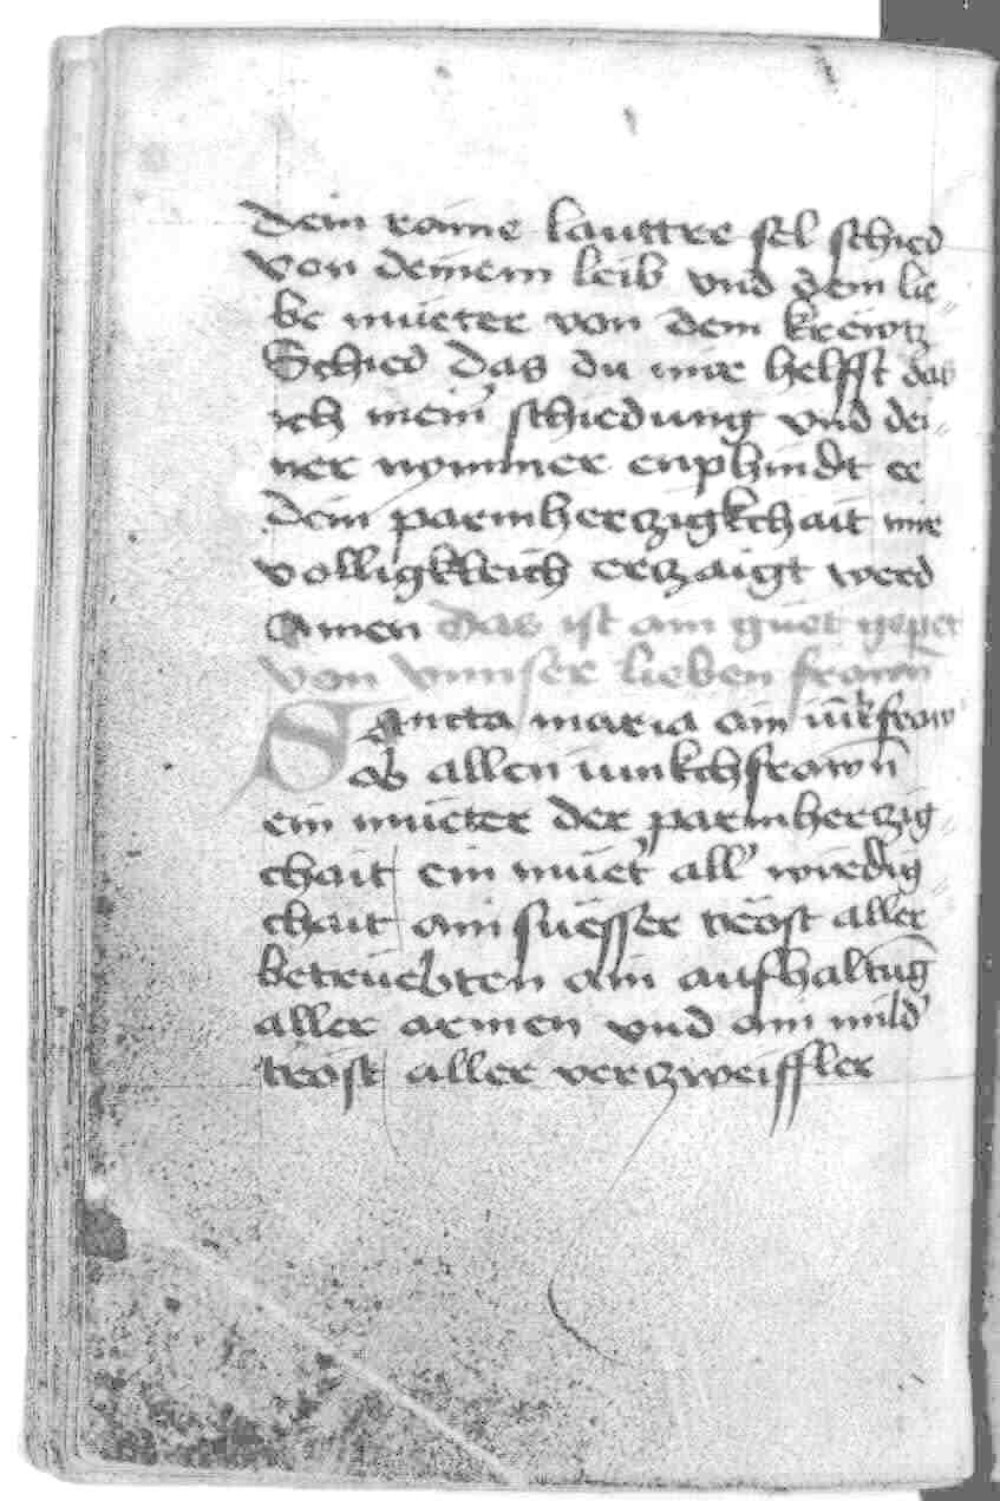 dein raine lauttre sel schied
von deinem leib vnd dein lie„
be müeter von dem krewtz
Schied das du mir helfft das
ich mein' schiedung vnd dei„
ner nymmer enphindt ee
dein parmherczigkchait mir
volligkleich erczaigt werd
Amen das ist ain güet gepet
von vnnser lieben frawn
Sancta maria ain iūkfraw
ob allen iunkchfrawn̄
ein müeter der parmherczig„
chait ein müet' all' wirdig„
chait ain süesser tröst aller
betrüebten ain aufhaltūg
aller armen vnd ain mild'
tröst aller verczweiffler